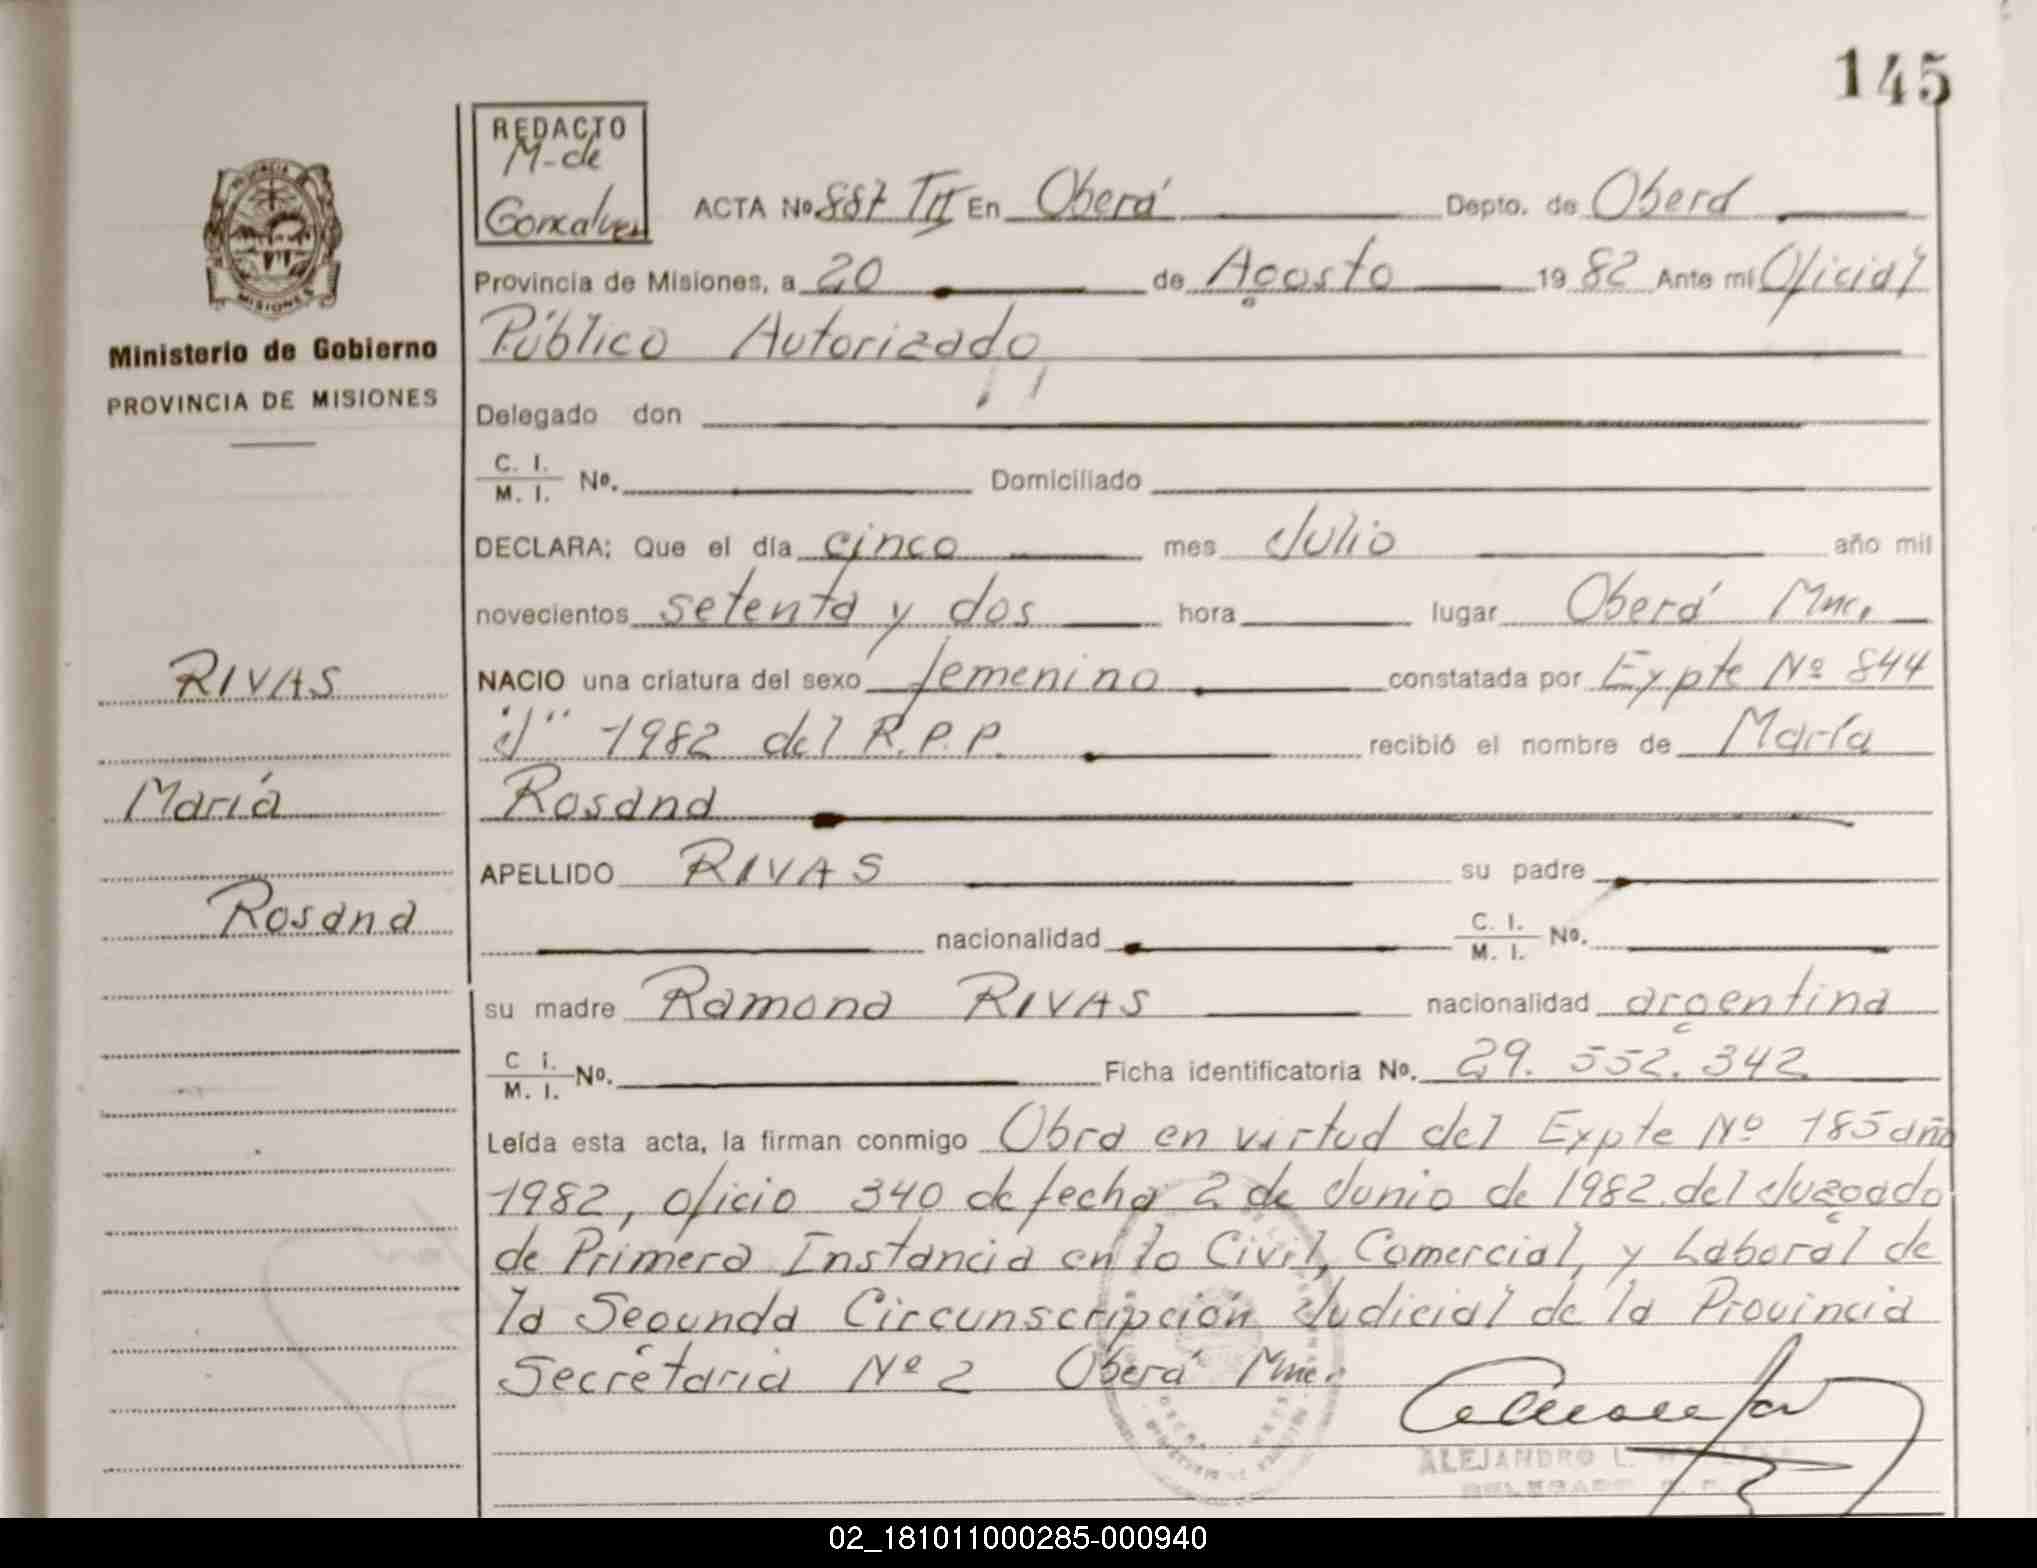 145
REDACTO
M-de
Goncalves
ACTA No. 887 TII En Oberá Depto. de Oberá
Provincia de Misiones, a 20 de Agosto 1982 Ante mi Oficial
Público Autorizado,
Delegado don
C. I.
M. I. No. Domiciliado
DECLARA: Que el día cinco mes Julio año mil
novecientos setenta y dos hora lugar Oberá Mnes.
NACIO una criatura del sexo femenino constatada por Expte Nº 844
"J" 1982 del R.P.P. recibió el nombre de María
Rosana
APELLIDO RIVAS su padre
nacionalidad C. I.
M. I. No.
su madre Ramona RIVAS nacionalidad argentina
C I.
M. I. No. Ficha identificatoria No. 29.552.342
Leída esta acta, la firman conmigo Obra en virtud del Expte Nº 185 año
1982, oficio 340 de fecha 2 de Junio de 1982 del Juzgado
de Primera Instancia en lo Civil, Comercial, y Laboral de
la Segunda Circunscripción Judicial de la Provincia
Secretaria Nº 2 Oberá Mnes.
ALEJANDRO L.
DELEGADO
PROVINCIA
MISIONES
Ministerio de Gobierno
PROVINCIA DE MISIONES
RIVAS
María
Rosana
02_181011000285-000940